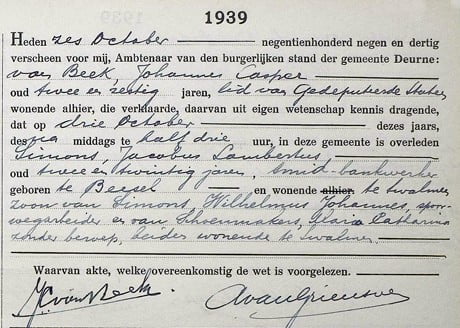 1939
Heden zes October negentienhonderd negen en dertig
verscheen voor mij, Ambtenaar van den burgerlijken stand der gemeente Deurne:
van Beek, Johannes Casper
oud twee en zestig jaren, lid van Gedeputeerde Staten
wonende alhier, die verklaarde, daarvan uit eigen wetenschap kennis dragende,
dat op drie October dezes jaars,
des na middags te half drie uur, in deze gemeente is overleden
Simons, Jacobus Lambertus
oud twee en twintig jaren, smid-bankwerker
geboren te Beesel en wonende alhier te Swalmen
zoon van Simons, Wilhelmus Johannes, spoor-
wegarbeider en van Schoenmakers, Maria Catharina
zonder beroep, beiden wonende te Swalmen.
Waarvan akte, welke overeenkomstig de wet is voorgelezen.
JC van Beek